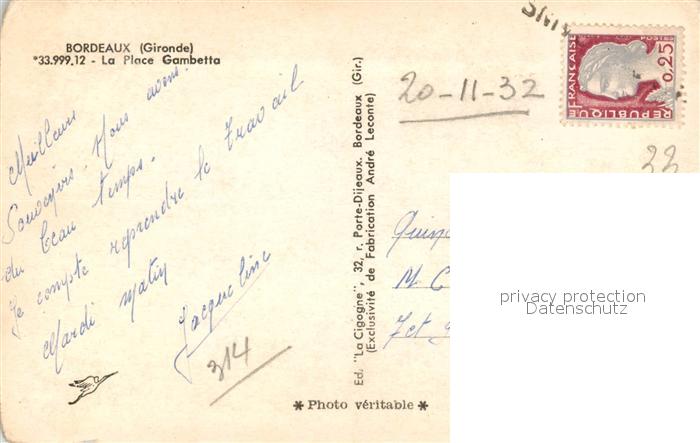 BORDEAUX (Gironde)
*33.999.12 - La Place Gambetta
Meilleurs
Souvenirs. Nous avons
du beau temps.
Je compte reprendre le travail
Mardi matin
Jacqueline
314
Ed. "La Cigogne", 32, r. Porte-Dijeaux. Bordeaux (Gir.)
(Exclusivité de Fabrication André Leconte)
* Photo véritable *
20-11-32
REPUBLIQUE
FRANÇAISE
POSTES
0,25
M. C
privacy protection
Datenschutz